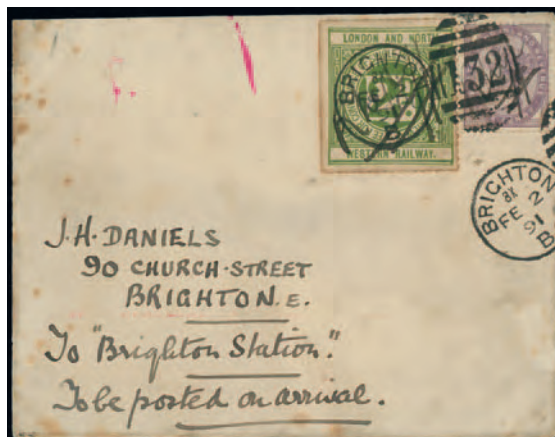 LONDON AND NORTH
WESTERN RAILWAY.
BRIGHTON
132
BRIGHTON
8X
FE 2
91
B
J.H. DANIELS
90 CHURCH·STREET
BRIGHTON. E.
To "Brighton Station."
To be posted on arrival.